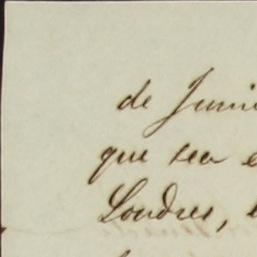 de Juni
que sea e
Londres,